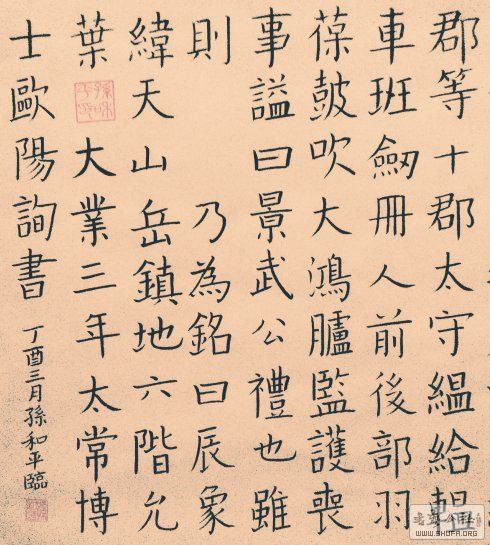 郡等十郡太守緼給
車班劒冊人前後部羽
葆皷吹大鴻臚監護喪
事謚曰景武公禮也雖
則 乃為銘曰辰象
緯天山岳鎮地六階允
葉 大業三年太常博
士歐陽詢書
丁酉三月孫和平臨
WWW.SHUFA.ORG